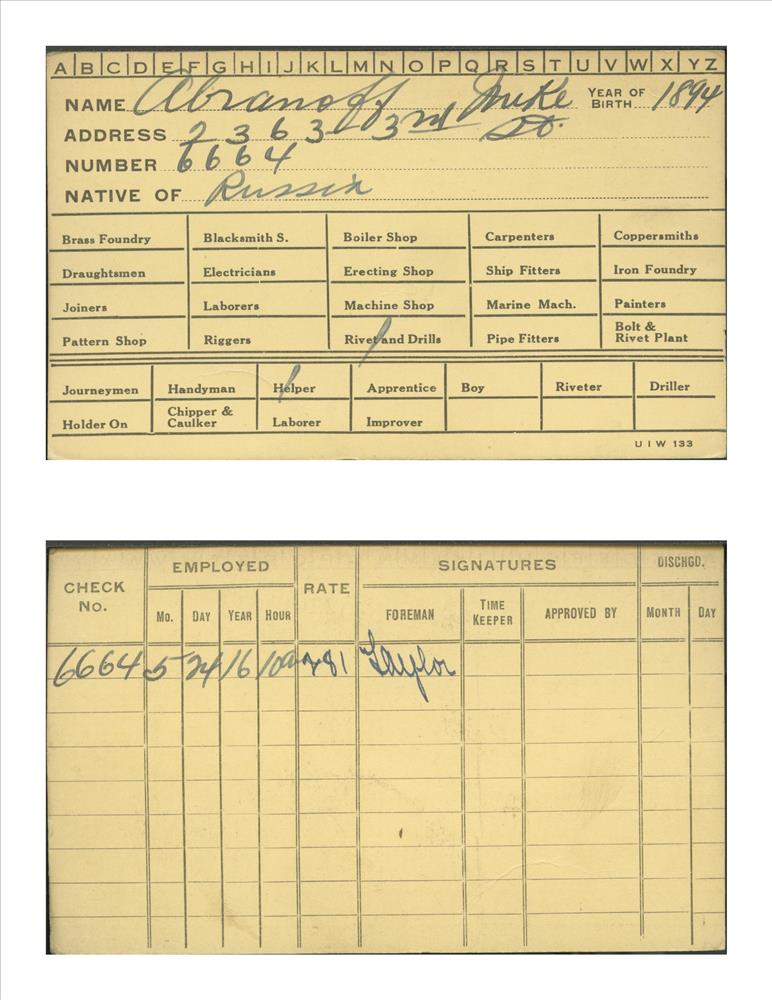 A B C D E F G H I J K L M N O P Q R S T U V W X Y Z
NAME Abranoff Mike YEAR OF BIRTH 1894
ADDRESS 2363 3rd St.
NUMBER 6664
NATIVE OF Russia
Brass Foundry Blacksmith S. Boiler Shop Carpenters Coppersmiths
Draughtsmen Electricians Erecting Shop Ship Fitters Iron Foundry
Joiners Laborers Machine Shop Marine Mach. Painters
Pattern Shop Riggers Rivet and Drills Pipe Fitters Bolt & Rivet Plant
Journeymen Handyman Helper Apprentice Boy Riveter Driller
Holder On Chipper & Caulker Laborer Improver
U I W 133
CHECK No. EMPLOYED RATE SIGNATURES DISCHGD.
Mo. DAY YEAR HOUR FOREMAN TIME KEEPER APPROVED BY MONTH DAY
6664 5 24 16 10a 281 Taylor